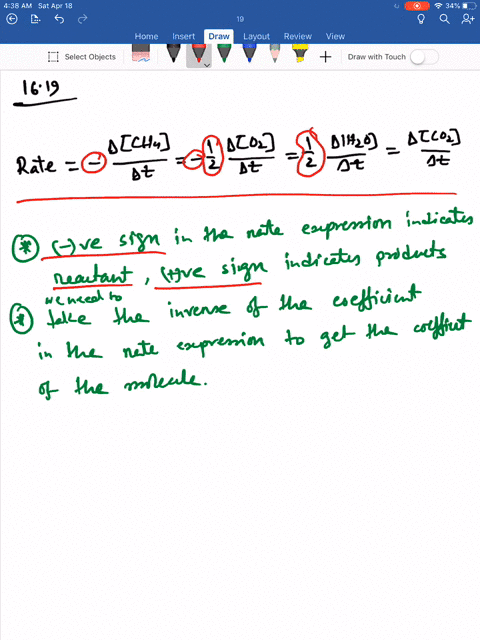 4:38 AM Sat Apr 18
34%
19
Home Insert Draw Layout Review View
Select Objects
Draw with Touch
16.19
Rate = - Δ[CH4]/Δt = - 1/2 Δ[O2]/Δt = 1/2 Δ[H2O]/Δt = Δ[CO2]/Δt
* (-)ve sign in the rate expression indicates
reactant, (+)ve sign indicates products
we need to
* take the inverse of the coefficient
in the rate expression to get the coefficient
of the molecule.